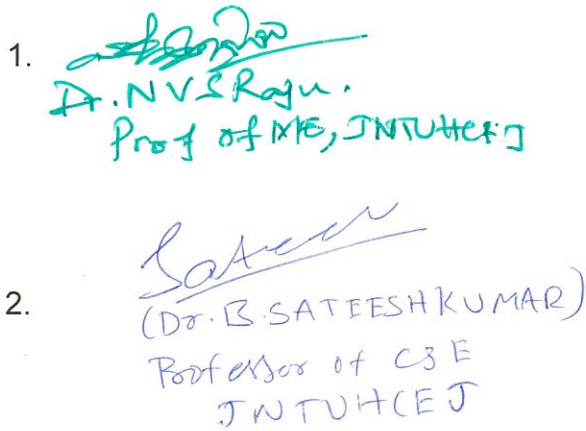 1.
Dr. NVS Raju.
Prof of ME, JNTUHCEJ
2.
Sateesh
(Dr. B. SATEESH KUMAR)
Professor of CSE
JNTUHCEJ